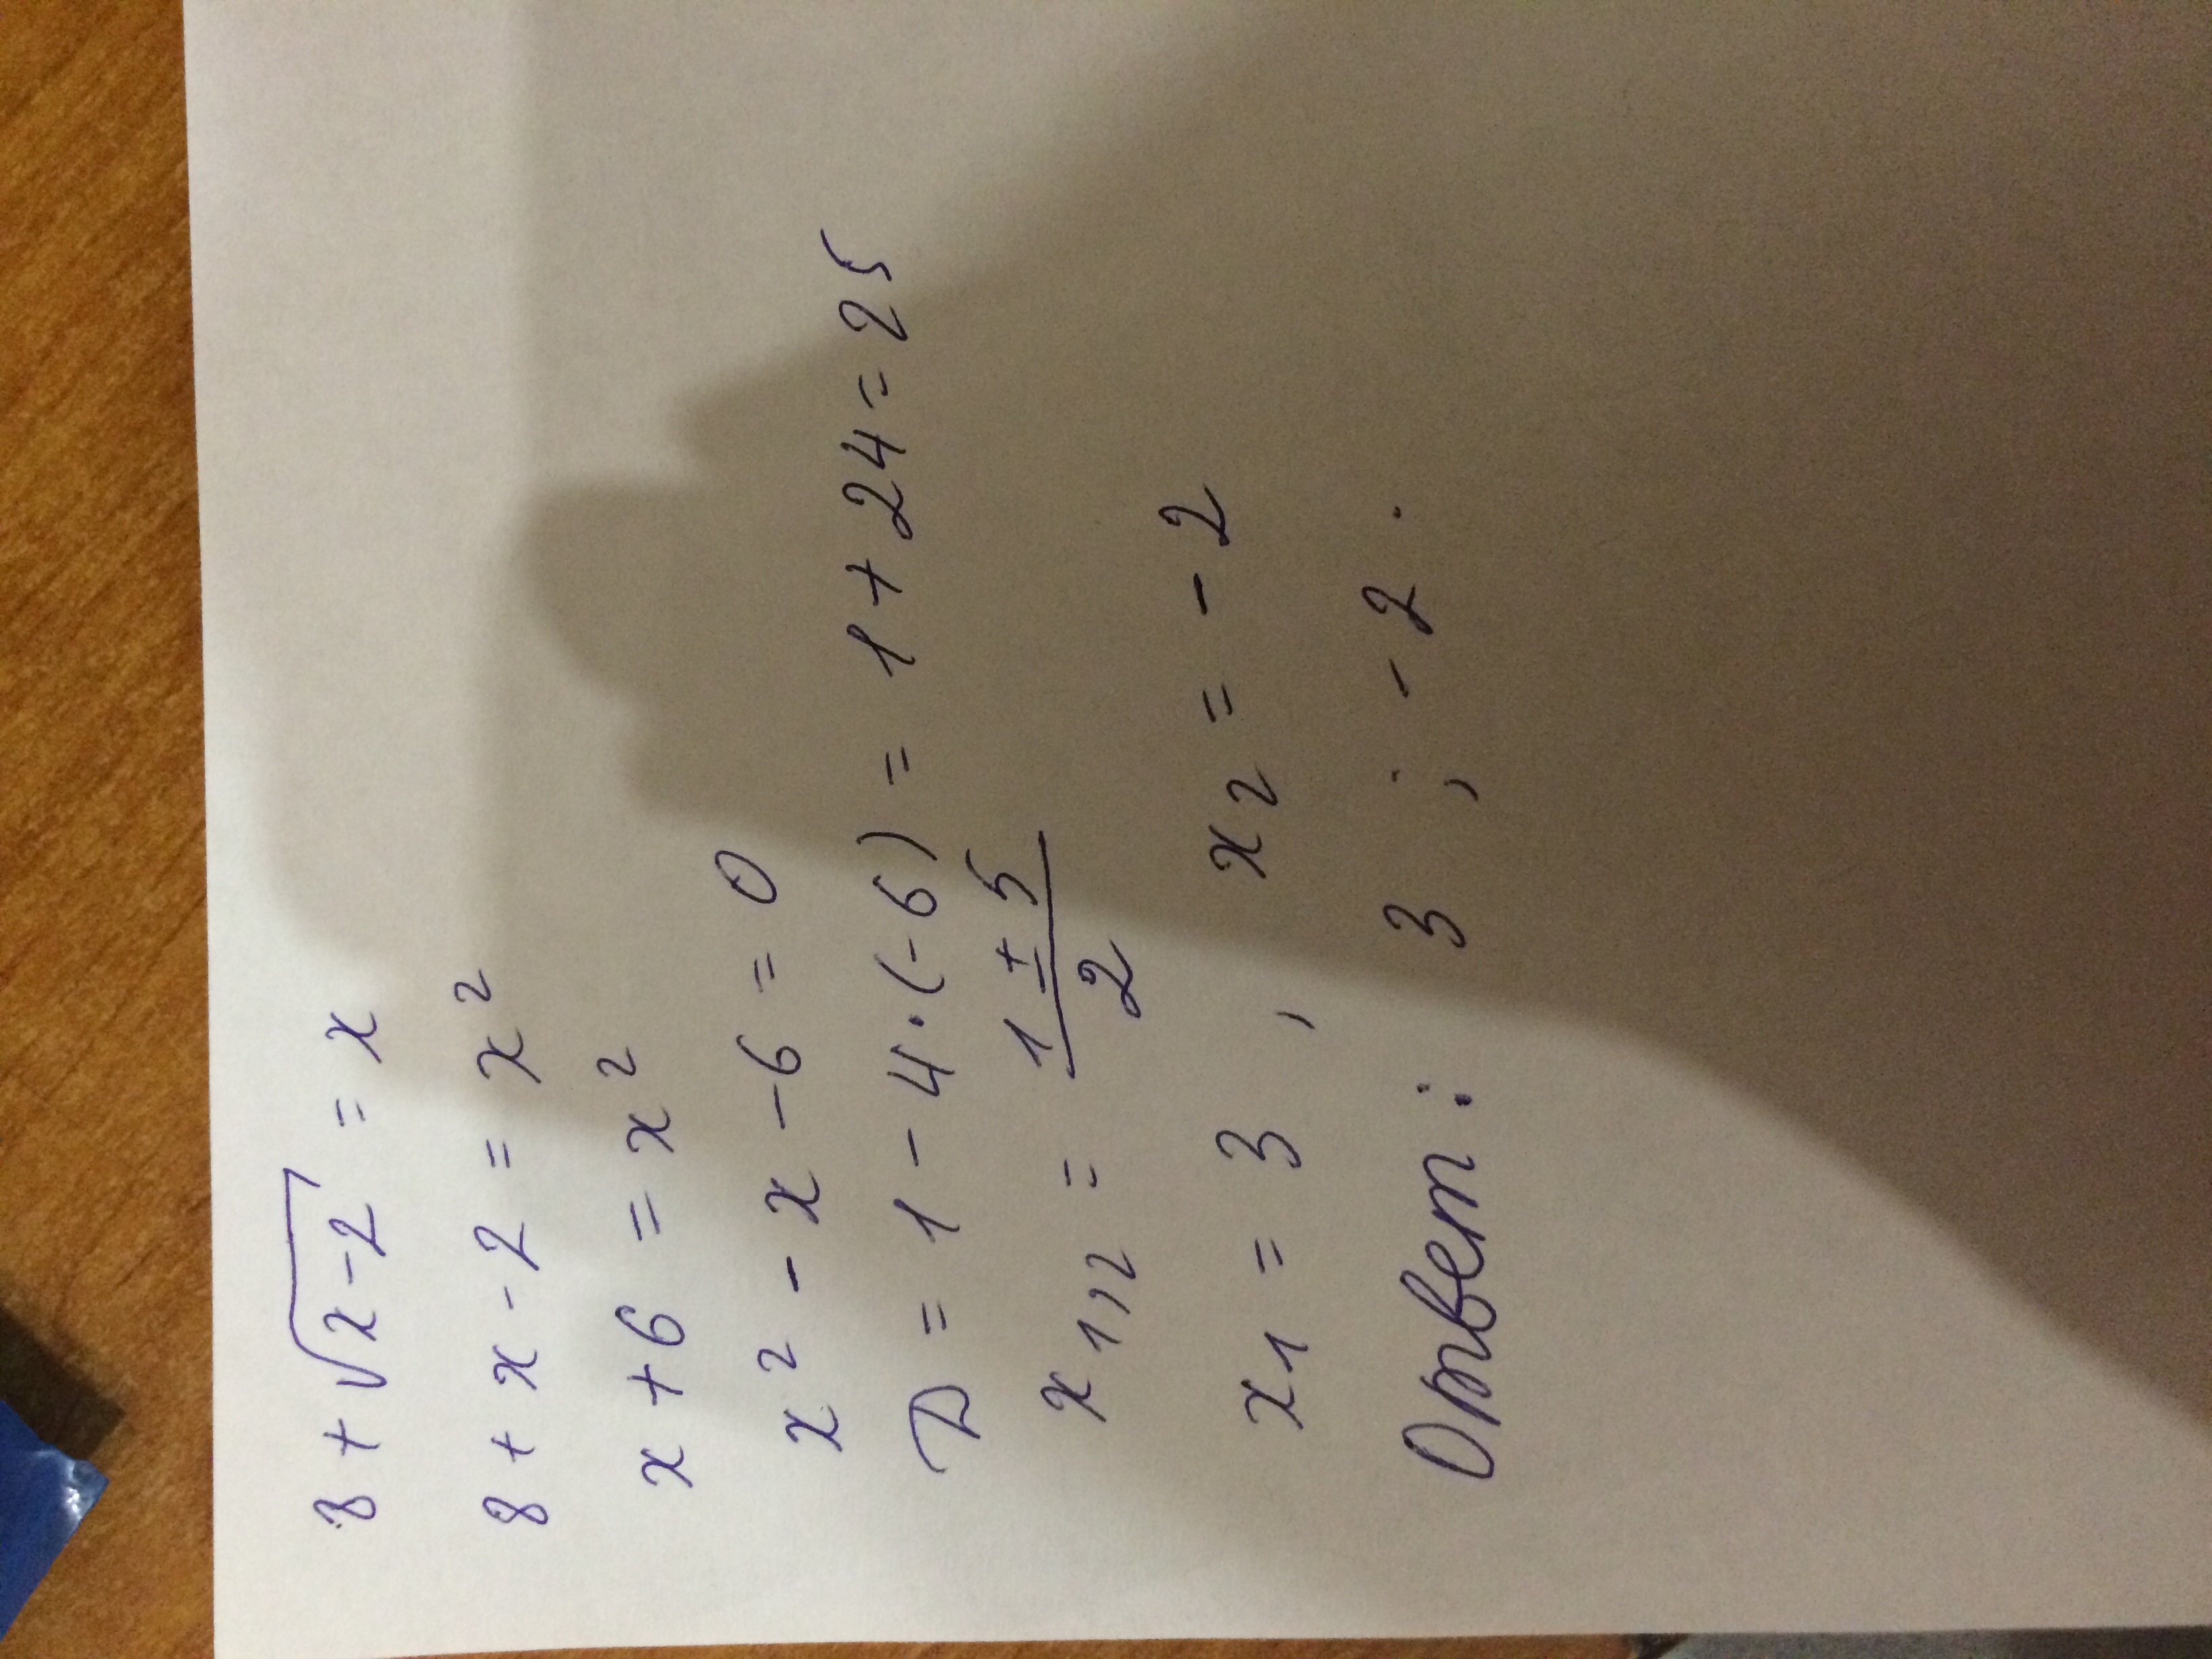 8 + √(x-2) = x
8 + x - 2 = x²
x + 6 = x²
x² - x - 6 = 0
D = 1 - 4·(-6) = 1 + 24 = 25
x₁,₂ = (1 ± 5)/2
x₁ = 3, x₂ = -2
Ответ: 3; -2.